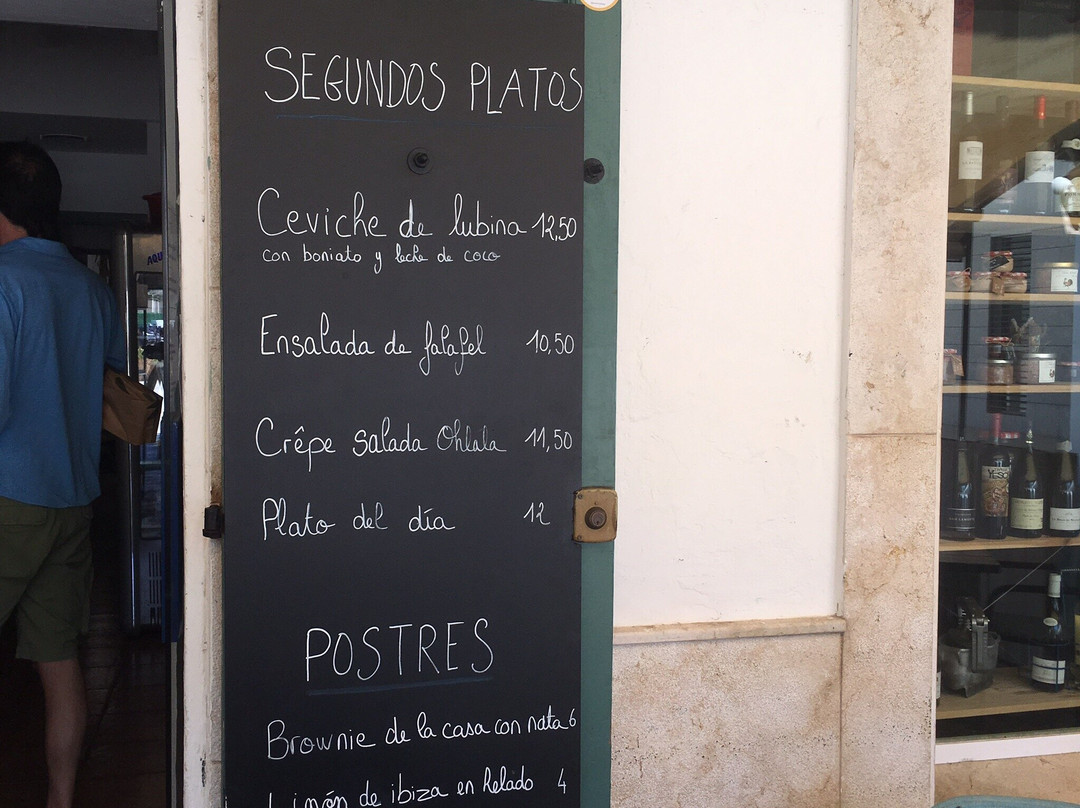 SEGUNDOS PLATOS
Ceviche de lubina 12,50
con boniato y leche de coco
Ensalada de falafel 10,50
Crêpe salada Ohlala 11,50
Plato del día 12
POSTRES
Brownie de la casa con nata 6
Limón de ibiza en helado 4
AQU